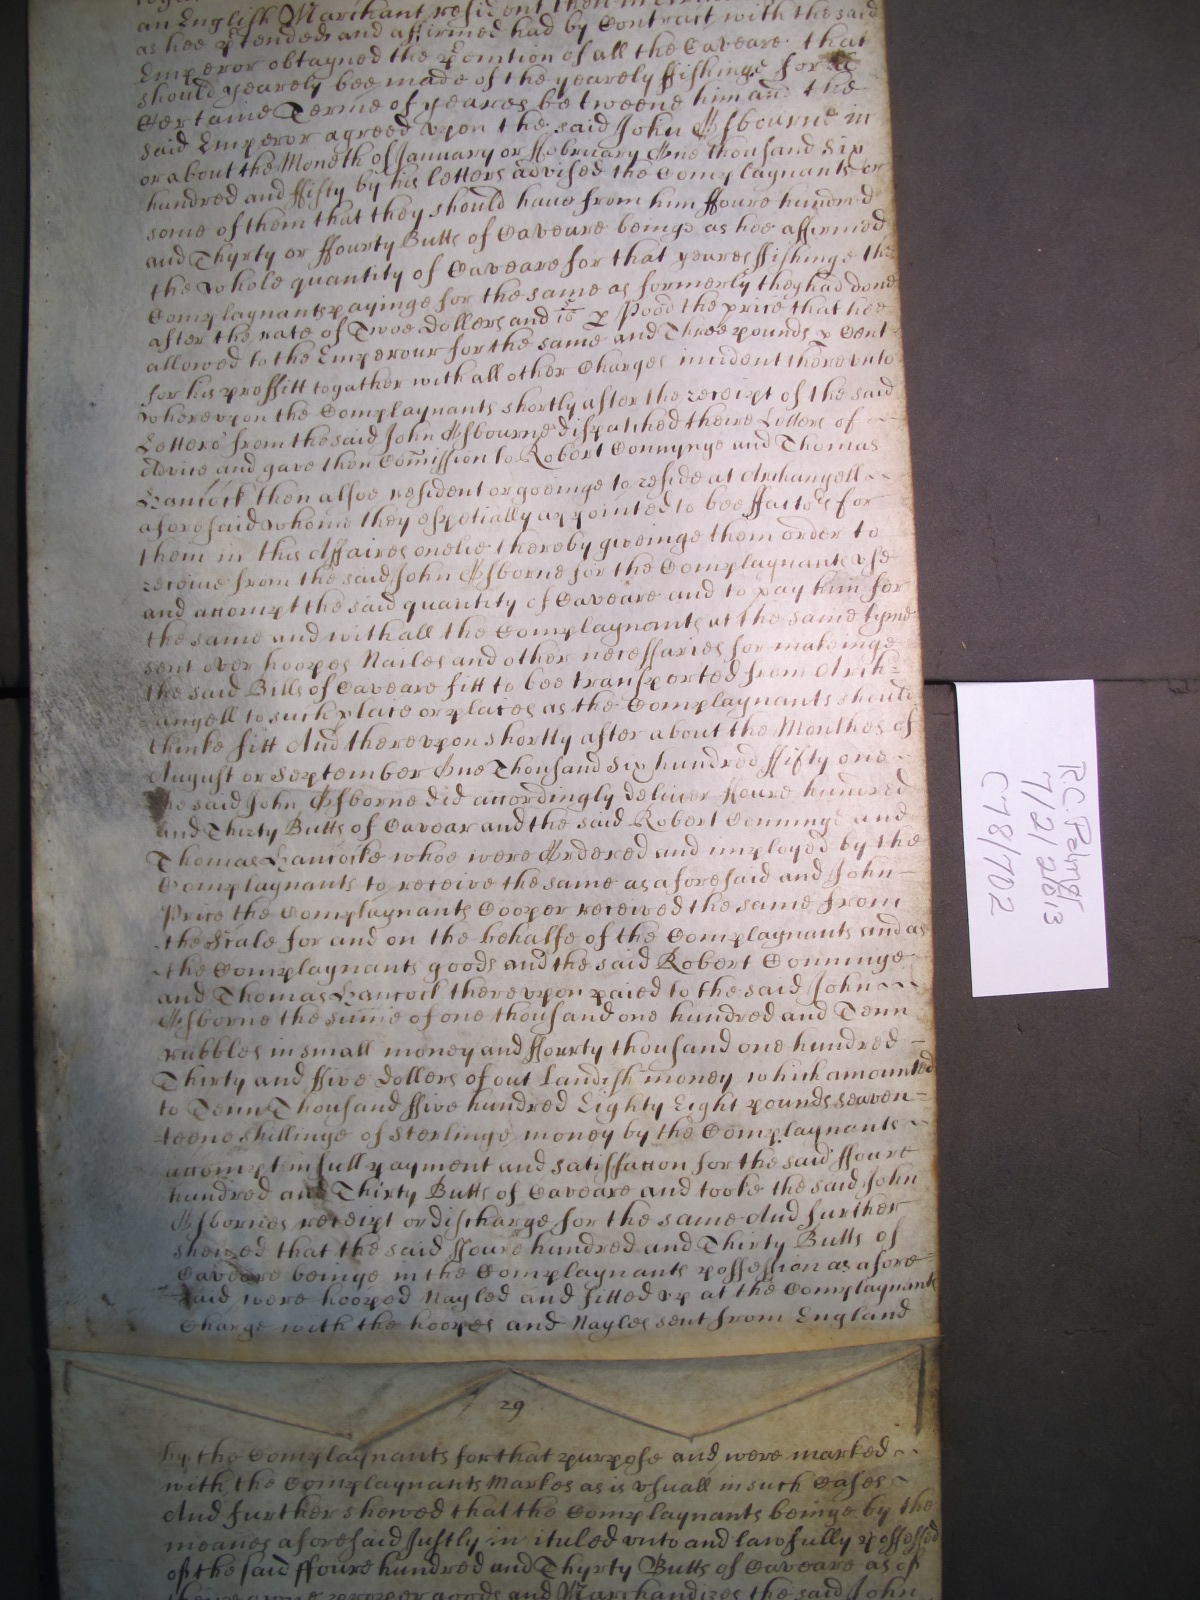 an English Marchant resident then in
as hee p'tended and affirmed had by Contract with the said
Emperor obtayned the p'emtion of all the Caveare that
should yearely bee made of the yearely ffishinge for a
Certaine Terme of yeares betweene him and the
said Emperor agreed vpon the said John Osbourne in
or about the Moneth of January or ffebruary One thousand six
hundred and ffifty by his letters advised the Complaynants or
some of them that they should haue from him ffoure hundred
and Thyrty or ffourty Butts of Caveare beinge as hee affirmed
the whole quantity of Caveare for that yeares ffishinge the
Complaynants payinge for the same as formerly they had done
after the rate of Twoe Dollers and 5/10 p Pood the price that hee
allowed to the Emperour for the same and Three pounds p Cent
for his proffitt togather with all other Charges incident therevnto
wherevpon the Complaynants shortly after the receipt of the said
Letters from the said John Osbourne dispatched theire Letters of
advice and gave then Comission to Robert Connynge and Thomas
Hancock then alsoe resident or goeinge to reside at Archangell
aforesaid whome they espetially appointed to bee ffactors for
them in this Affaires onelie thereby giveinge them order to
receive from the said John Osborne for the Complaynants vse
and accompt the said quantity of Caveare and to pay him for
the same and withall the Complaynants at the same tyme
sent over hoopes Nailes and other necessaries for makeinge
the said Bills of Caveare fitt to bee transported from Arch=
angell to such place or places as the Complaynants should
thinke fitt And therevpon shortly after about the Monthes of
August or September One Thousand six hundred ffifty one
the said John Osborne did accordingly deliver ffoure hundred
and Thirty Butts of Cavear and the said Robert Conninge and
Thomas Hancocke whoe were Ordered and imployed by the
Complaynants to receive the same as aforesaid and John
Price the Complaynants Cooper received the same from
the Scale for and on the behalfe of the Complaynants and as
the Complaynants goods and the said Robert Conninge
and Thomas Hancock therevpon paied to the said John
Osborne the summe of one thousand one hundred and Tenn
rubbles in small money and ffourty thousand one hundred
Thirty and ffive Dollers of out Landish money which amounted
to Tenn Thousand ffive hundred Eighty Eight pounds seaven=
teene shillinge of Sterlinge money by the Complaynants
accompt in full payment and satisfaction for the said ffoure
hundred and Thirty Butts of Caveare and tooke the said John
Osbornes receipt or discharge for the same And further
shewed that the said ffoure hundred and Thirty Butts of
Caveare beinge in the Complaynants possession as afore=
said were hooped Nayled and fitted vp at the Complaynants
Charge with the hoopes and Nayles sent from England
29
by the Complaynants for that purpose and were marked
with the Complaynants Markes as is vsuall in such Cases
And further shewed that the Complaynants beinge by the
meanes aforesaid Justly intituled vnto and lawfully possessed
of the said ffoure hundred and Thyrty Butts of Caveare as of
theire owne proper goods and Marchandizes the said John
RC Palmer
7/21/2013
C78/702